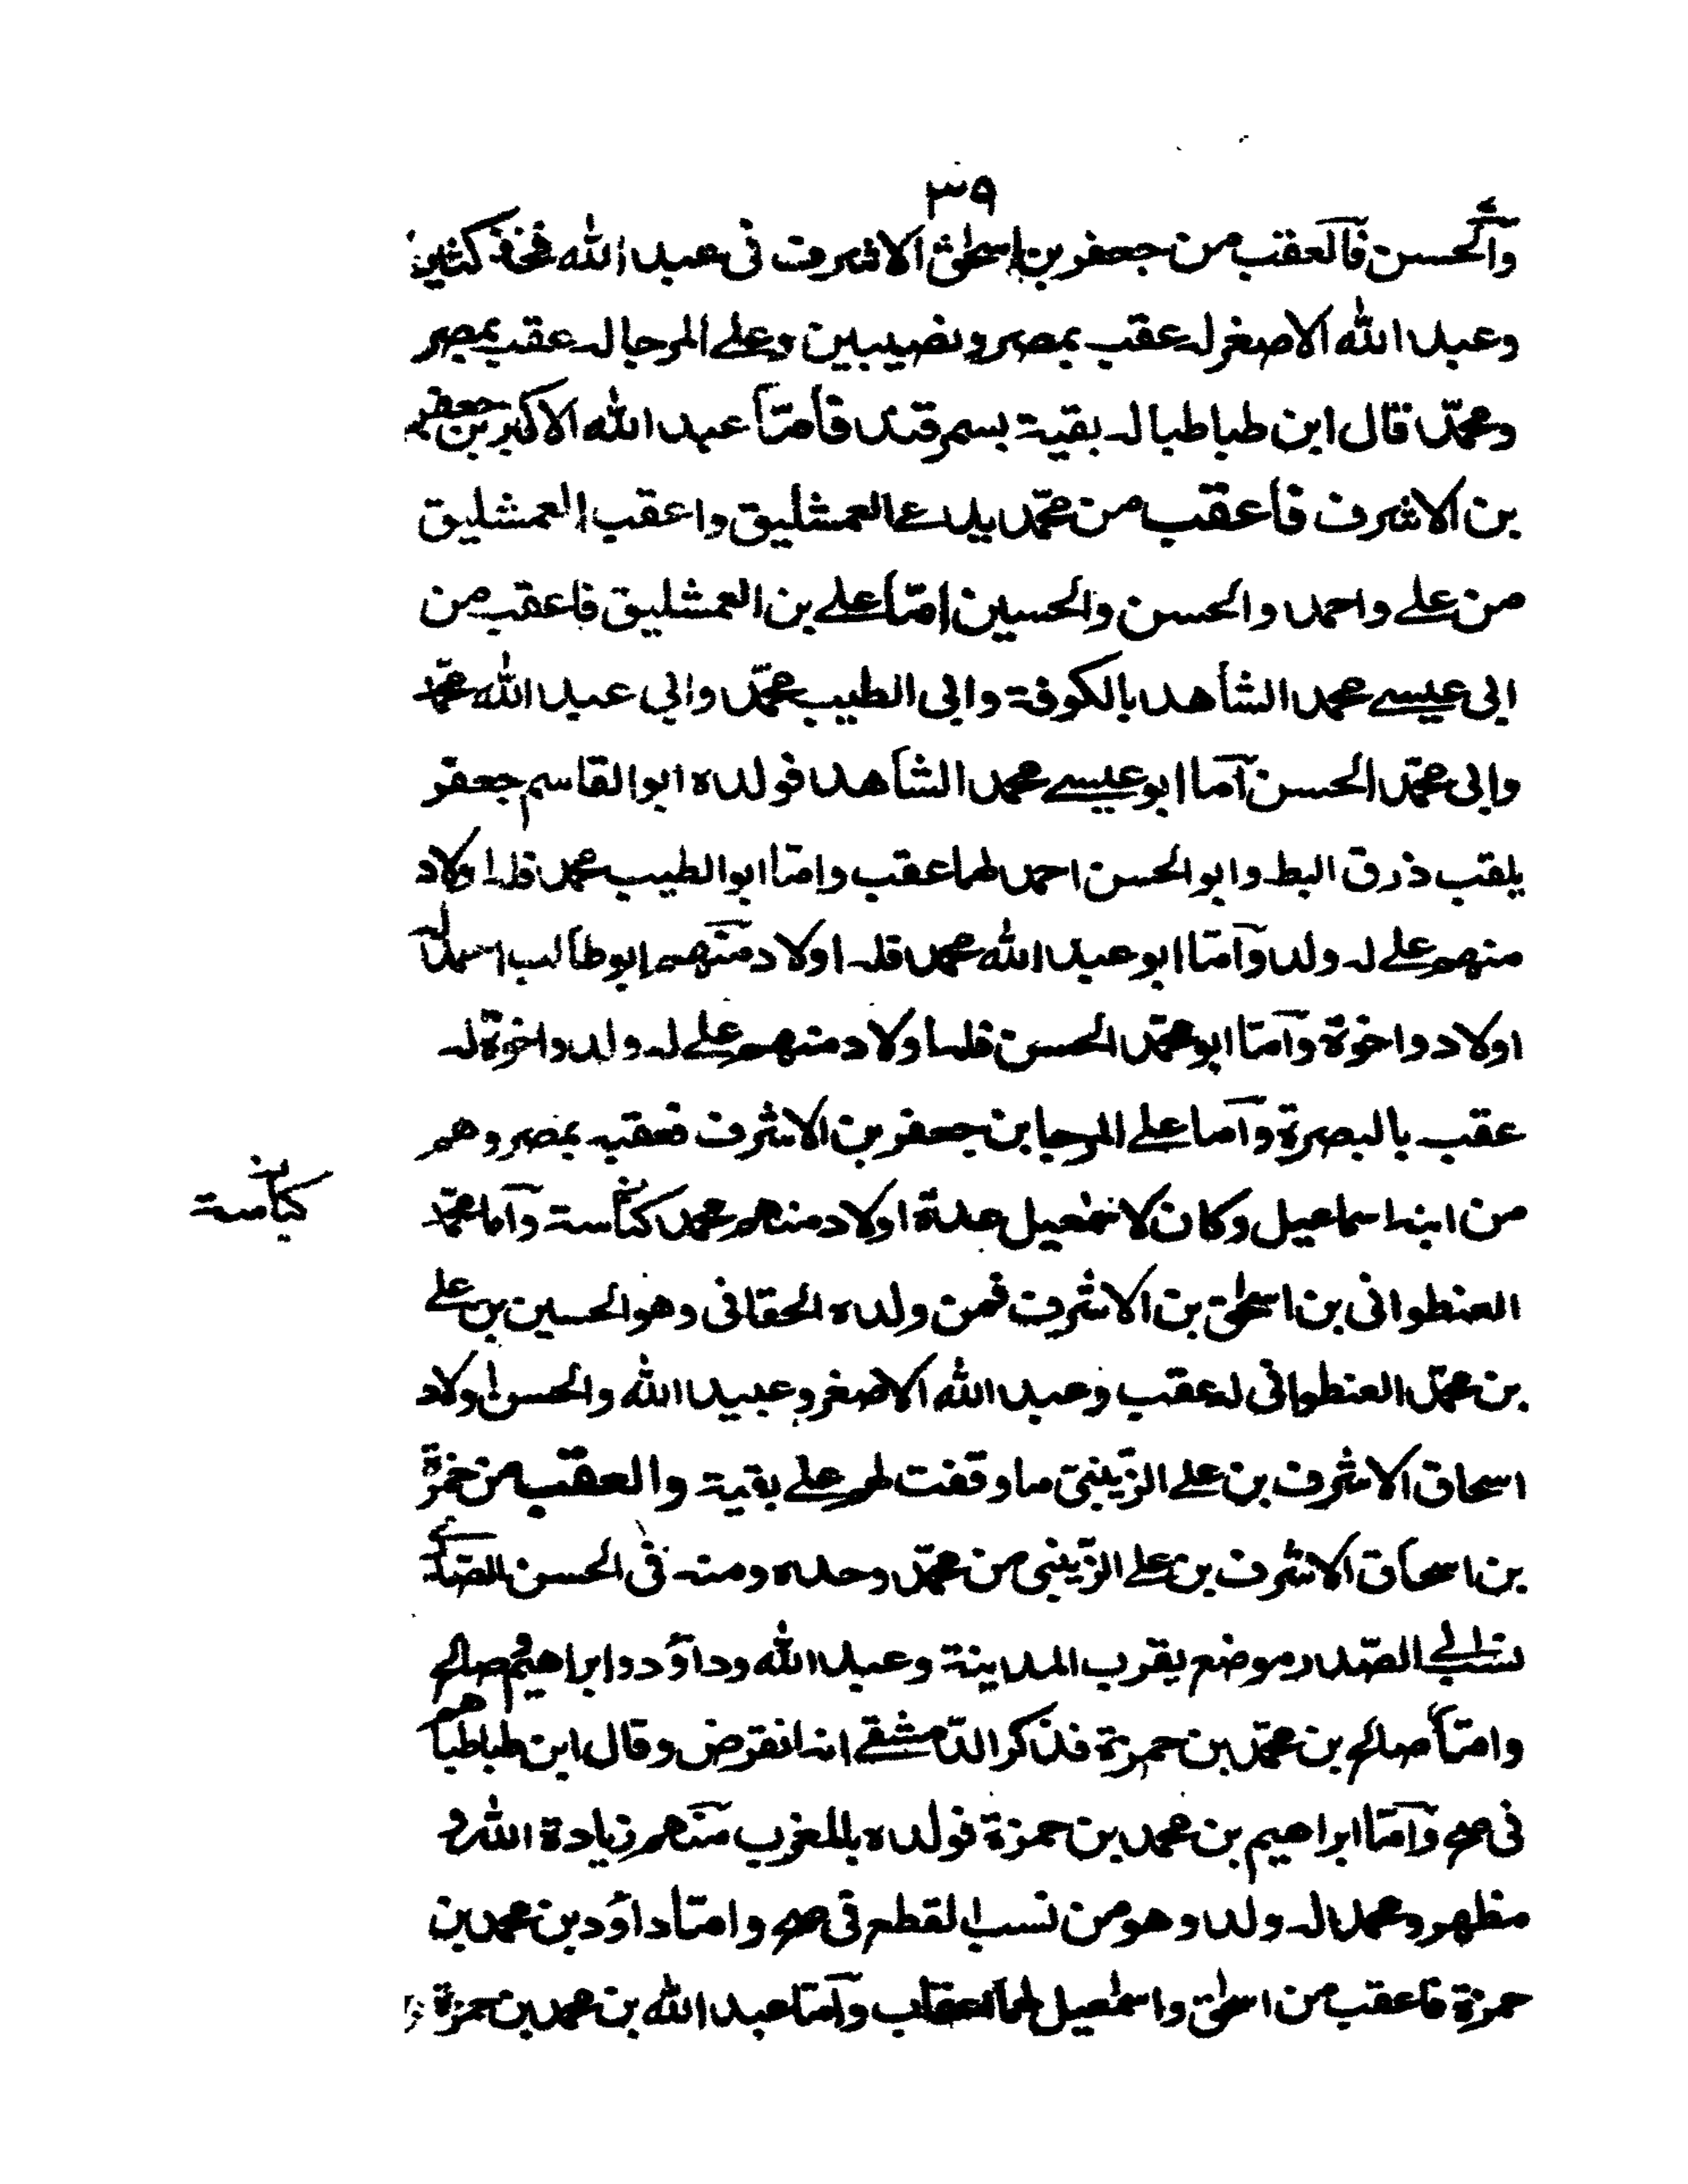 ٣٩
والحسن فالعقب من جعفر بن اسحٰق الاشرف فى عبد الله فخذ كثير
وعبد الله الاصغر له عقب بمصر ونصيبين وعلے المرجا له عقب بمصر
ومحمّد قال ابن طباطبا له بقية بسمرقند فأمّا عبد الله الاكبر بن جعفر
بن الاشرف فأعقب من محمّد يدعے العمشليق واعقب العمشليق
من علے واحمد والحسن والحسين امّا علے بن العمشليق فاعقب من
ابى عيسے محمد الشاهد بالكوفة وابى الطيب محمّد وابي عبد الله محمّد
وابى محمّد الحسن اما ابو عيسے محمد الشاهد فولده ابوالقاسم جعفر
يلقب ذرق البط وابو الحسن احمد لهما عقب وامّا ابوالطيب محمد فله اولاد
منهم علے له ولد وآمّا ابو عبد الله محمد فله اولاد منهم ابو طالب احمد له
اولاد واخوة وآمّا ابومحمّد الحسن فله اولاد منهم علے له ولد واخوة له
عقب بالبصرة وآما علے المرجا بن جعفر بن الاشرف فعقبه بمصر وهم
من ابنه اسماعيل وكان لاسمٰعيل عدة اولاد منهم محمد كناسة وآما محمّد
كباسة
العنطوانى بن اسحٰق بن الاشرف فمن ولده الحقانى وهو الحسين بن علے
بن محمّد العنطوانى له عقب وعبد الله الاصغر وعبيد الله والحسن اولاد
اسحاق الاشرف بن علے الزّينبىّ ما وقفت لهم علے بقية والعقب من حمزة
بن اسحاق الاشرف بن علے الزّينبى من محمّد وحده ومنه فى الحسن الصّدرے
نسب الے الصّدر موضع بقرب المدينة وعبد الله وداؤد وابراهيم وصالح
وامّا صالح بن محمّد بن حمزة فذكر الدّمشقے انه انقرض وقال ابن طباطبا هم
فى صح وآمّا ابراهيم بن محمد بن حمزة فولده بالمغرب منهم زيادة الله و
مظهر ومحمد له ولد وهو من نسب القطع فى صح وامّا داؤد بن محمد بن
حمزة فاعقب من اسحٰق واسمٰعيل لهما اعقاب وآمّا عبد الله بن محمد بن حمزة